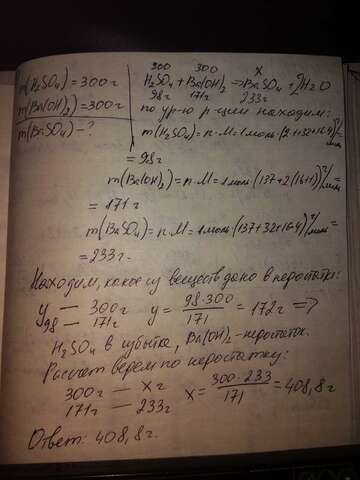 m(H₂SO₄) = 300 г
m(Ba(OH)₂) = 300 г
m(BaSO₄) - ?
300 300 x
H₂SO₄ + Ba(OH)₂ => BaSO₄ + 2H₂O
98г 171г 233г
по ур-ю р-ции находим:
m(H₂SO₄) = n·M = 1моль·(2+32+16·4) г/моль
= 98г
m(Ba(OH)₂) = n·M = 1моль·(137+2(16+1)) г/моль =
= 171г
m(BaSO₄) = n·M = 1моль·(137+32+16·4) г/моль =
= 233г.
Находим, какое из веществ дано в недостатке:
y — 300г
98 — 171г y = 98·300/171 = 172г =>
H₂SO₄ в избытке, Ba(OH)₂ - недостаток.
Расчет ведем по недостатку:
300г — xг
171г — 233г x = 300·233/171 = 408,8г
Ответ: 408,8г.